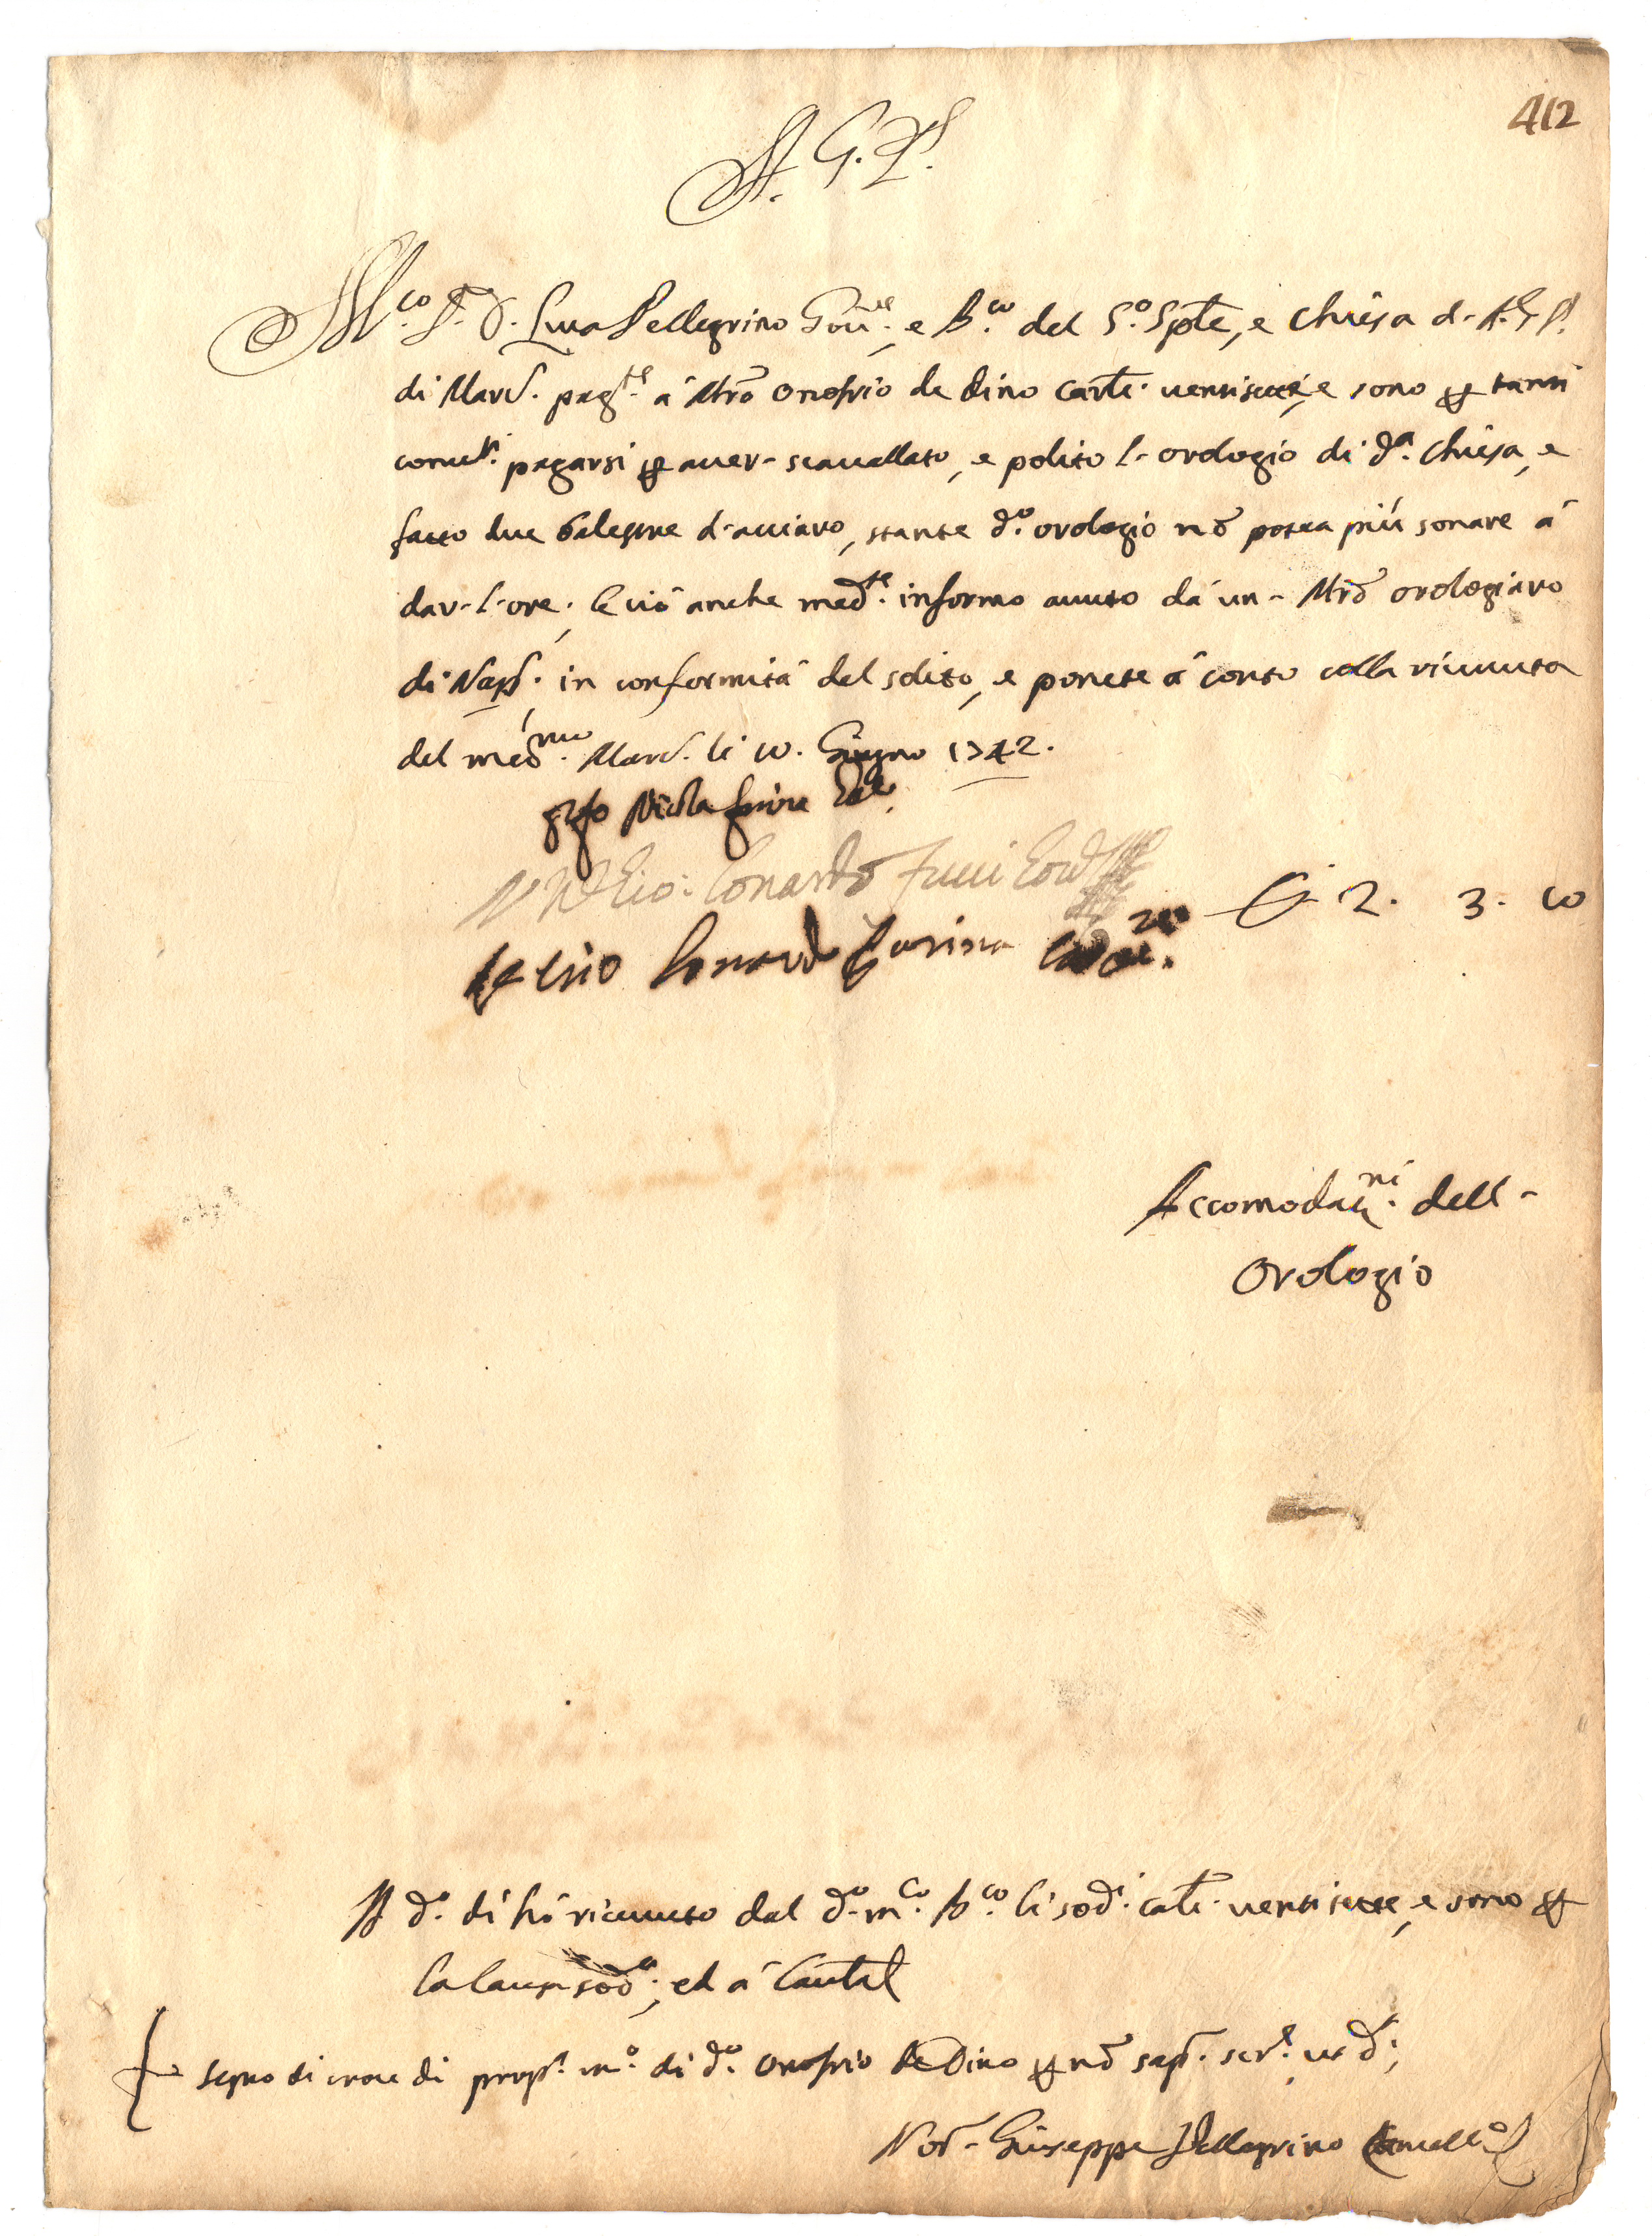 412
A. G. P.
M.co S. D. Luca Pellegrino Gov.re, e B.co del S.o Spte, e Chiesa d. A. G. P.
di Marc. pag.te à Mrõ Onofrio de Dino carle. ventisette, e sono per tanti
conv. pagarsi per aver- scavallato, e polito l- orologio di d.a Chiesa, e
fatto due balestre d- acciaro, stante d.o orologio nõ potea più sonare à
dar- l- ore, e ciò anche med.te informo avuto dà un- Mrõ orologiaro
di Nap. in conformità del solito, e ponete à conto colla ricevuta
del med.mo Marc. li 10. Giugno 1742.
Nicola
Lonardo
Lonardo Farina
2. 3. 10
Accomodaz.ni dell-
Orologio
A d.o dì hò ricevuto dal d.o m.co B.co li sod.i carle. ventisette, e sono per
la causa sod.a, ed à cautel
Segno di croce di prop.a m.o di d.o Onofrio de Dino per nõ sap. scr.e ut d.r
Not- Giuseppe Pellegrino